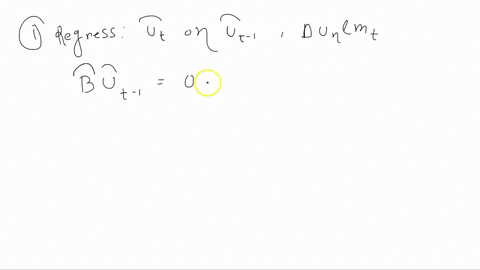 ① Regress: û_t on û_{t-1}, DUnlm_t
B̂ û_{t-1} = 0.